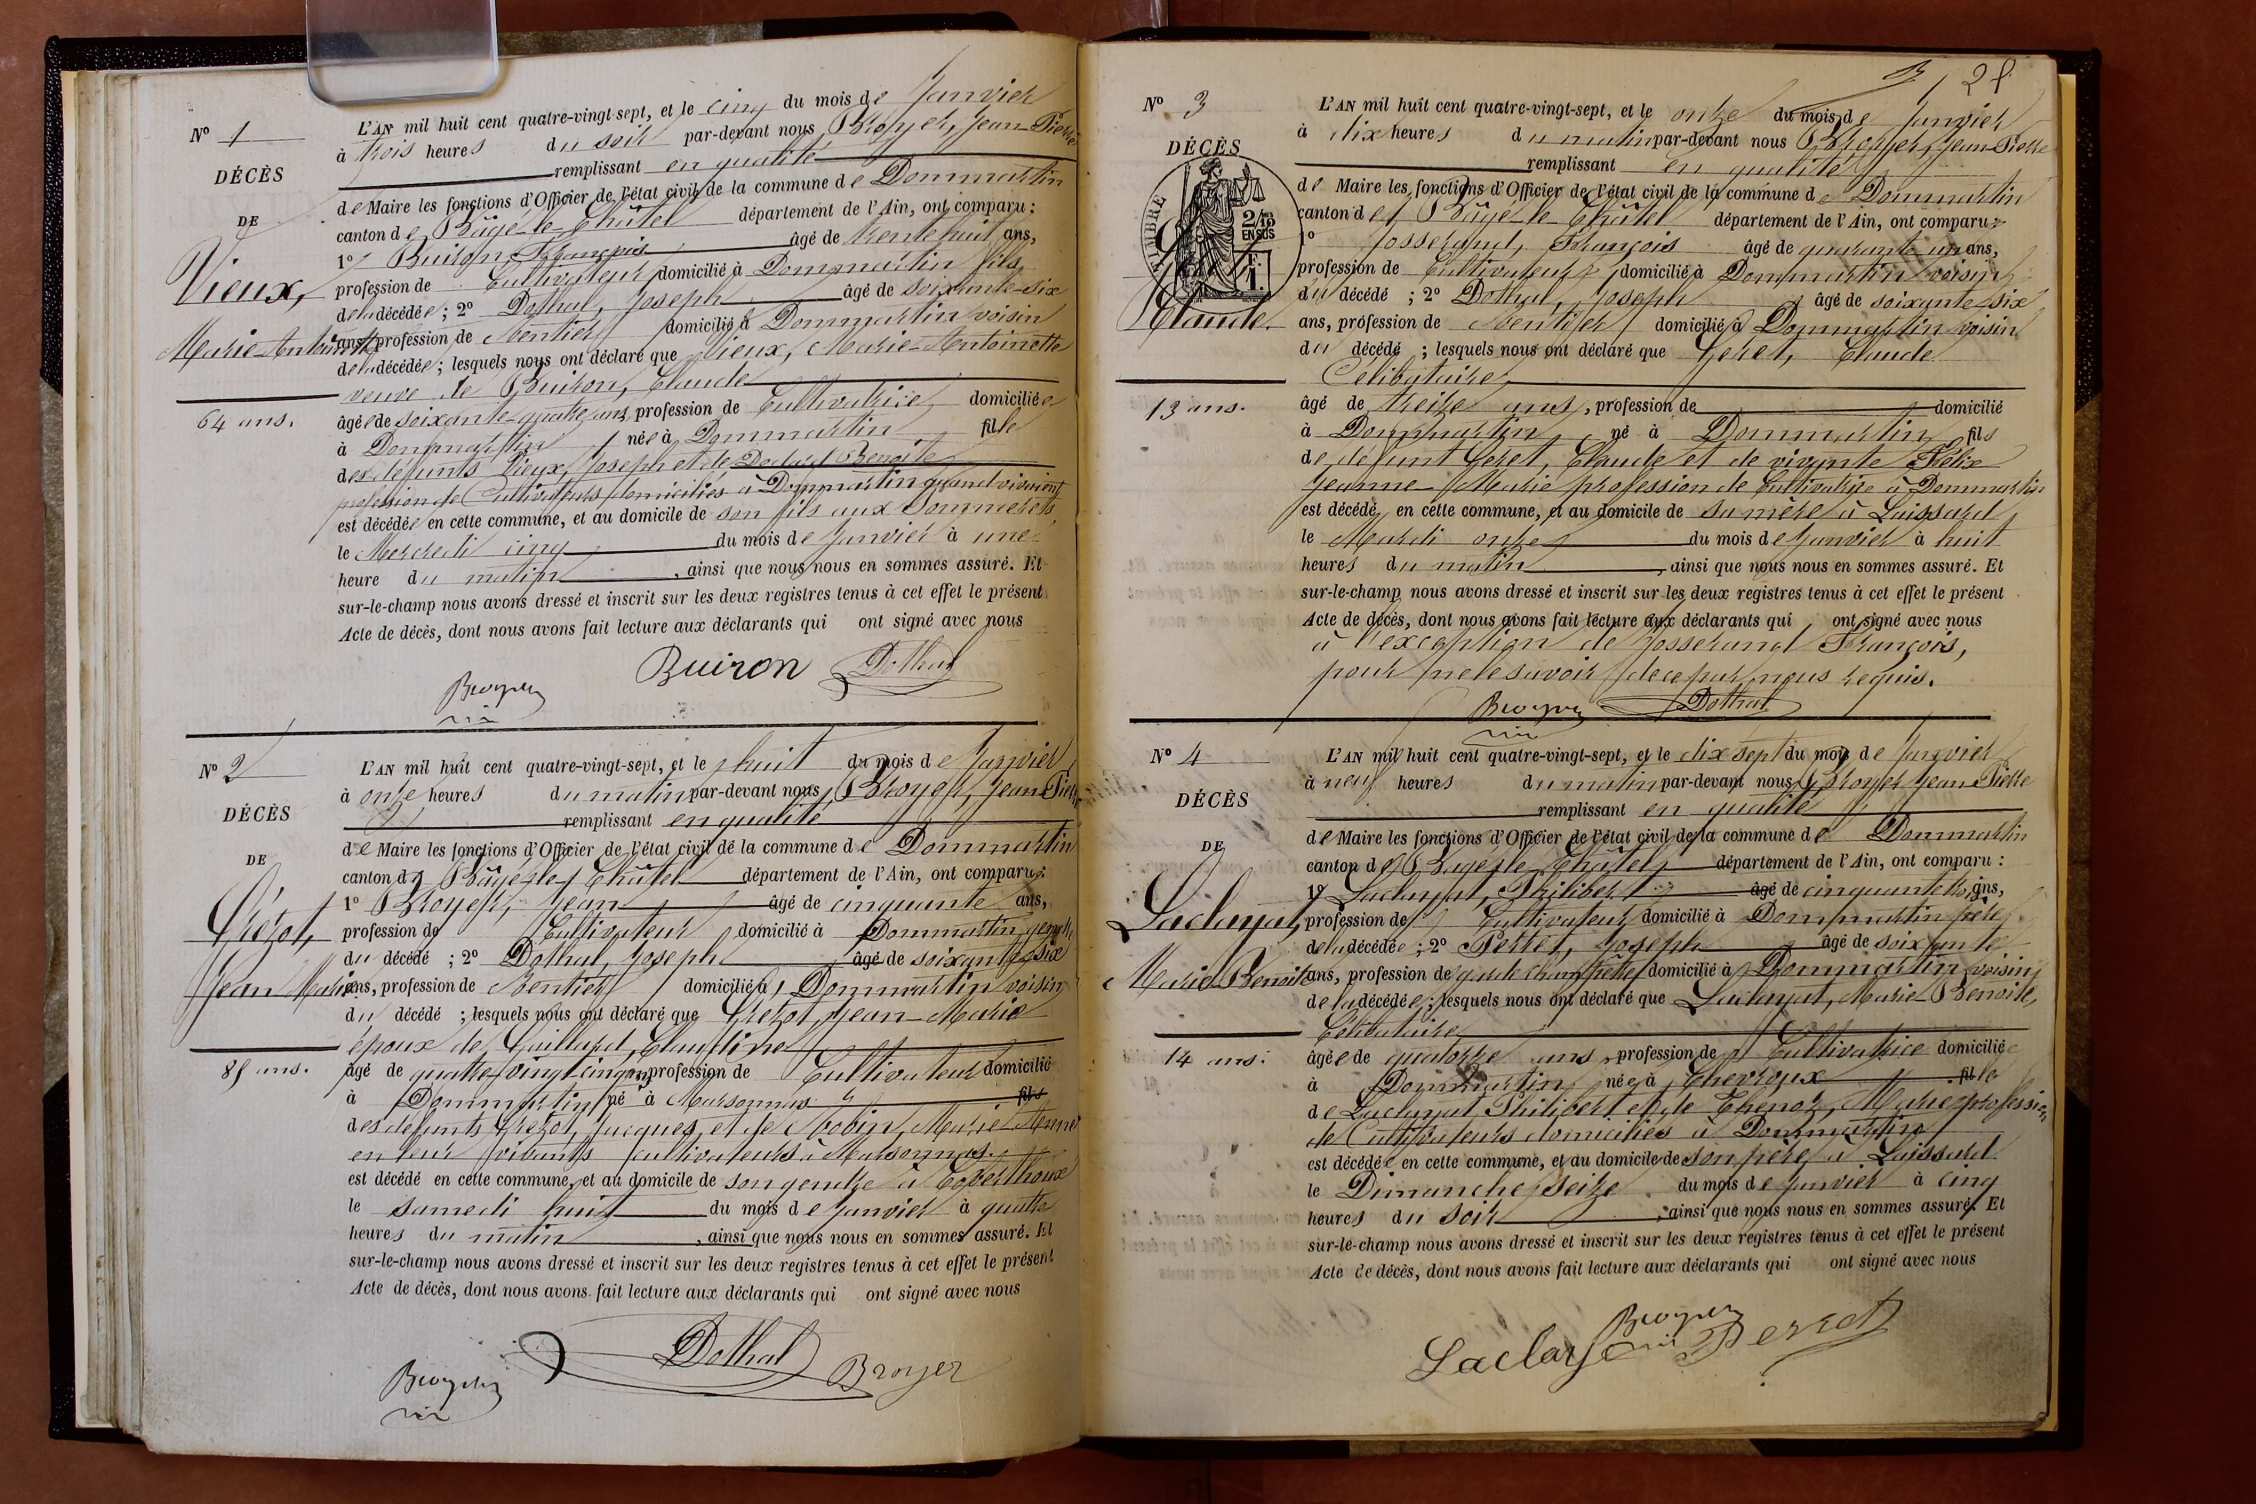 N° 1
DÉCÈS
DE
Vieux,
Marie-Antoinette
64 ans.
L'AN mil huit cent quatre-vingt-sept, et le cinq du mois de Janvier
à trois heures du soir par-devant nous Broyer, Jean-Pierre
remplissant en qualité
de Maire les fonctions d'Officier de l'état civil de la commune de Dommartin
canton de Bâgé-le-Châtel département de l'Ain, ont comparu :
1° Buiron François âgé de trente huit ans,
profession de Cultivateur domicilié à Dommartin fils
de la décédée ; 2° Dothal, Joseph âgé de soixante-six
ans, profession de Rentier domicilié à Dommartin voisin
de la décédée ; lesquels nous ont déclaré que Vieux, Marie-Antoinette
veuve de Buiron, Claude
âgée de soixante-quatre ans, profession de Cultivatrice domiciliée
à Dommartin née à Dommartin fille
des défunts Vieux, Joseph et de Benoîte
profession de Cultivateurs domiciliés à Dommartin quand vivaient
est décédée en cette commune, et au domicile de son fils aux
le Mercredi cinq du mois de Janvier à une
heure du matin, ainsi que nous nous en sommes assuré. Et
sur-le-champ nous avons dressé et inscrit sur les deux registres tenus à cet effet le présent
Acte de décès, dont nous avons fait lecture aux déclarants qui ont signé avec nous
Buiron Dothal
Broyer
N° 2
DÉCÈS
DE
Grézot,
Jean Marie
85 ans.
L'AN mil huit cent quatre-vingt-sept, et le huit du mois de Janvier
à onze heures du matin par-devant nous Broyer, Jean-Pierre
remplissant en qualité
de Maire les fonctions d'Officier de l'état civil de la commune de Dommartin
canton de Bâgé-le-Châtel département de l'Ain, ont comparu :
1° Broyer, Jean âgé de cinquante ans,
profession de Cultivateur domicilié à Dommartin gendre
du décédé ; 2° Dothal, Joseph âgé de soixante-six
ans, profession de Rentier domicilié à Dommartin voisin
du décédé ; lesquels nous ont déclaré que Grézot, Jean-Marie
époux de Gaillard, Claudine
âgé de quatre-vingt-cinq ans, profession de Cultivateur domicilié
à Dommartin né à Marsonnas fils
des défunts Grézot, Jacques, et de Robin, Marie-Anne
en leur vivants cultivateurs à Marsonnas.
est décédé en cette commune, et au domicile de son gendre à
le samedi huit du mois de Janvier à quatre
heures du matin, ainsi que nous nous en sommes assuré. Et
sur-le-champ nous avons dressé et inscrit sur les deux registres tenus à cet effet le présent
Acte de décès, dont nous avons fait lecture aux déclarants qui ont signé avec nous
Dothal
Broyer Broyer
28
N° 3
DÉCÈS
TIMBRE
2/10ES
EN SUS
1F
Claude.
13 ans.
L'AN mil huit cent quatre-vingt-sept, et le onze du mois de Janvier
à dix heures du matin par-devant nous Broyer, Jean-Pierre
remplissant en qualité
de Maire les fonctions d'Officier de l'état civil de la commune de Dommartin
canton de Bâgé-le-Châtel département de l'Ain, ont comparu :
1° Josserand, François âgé de quarante un ans,
profession de Cultivateur domicilié à Dommartin voisin
du décédé ; 2° Dothal, Joseph âgé de soixante-six
ans, profession de Rentier domicilié à Dommartin voisin
du décédé ; lesquels nous ont déclaré que Geret, Claude
Célibataire
âgé de treize ans, profession de domicilié
à Dommartin né à Dommartin fils
de défunt Geret, Claude et de vivante Félix
Jeanne-Marie profession de Cultivatrice à Dommartin
est décédé en cette commune, et au domicile de sa mère à Loissard
le Mardi onze du mois de Janvier à huit
heures du matin, ainsi que nous nous en sommes assuré. Et
sur-le-champ nous avons dressé et inscrit sur les deux registres tenus à cet effet le présent
Acte de décès, dont nous avons fait lecture aux déclarants qui ont signé avec nous
à l'exception de Josserand François,
pour ne le savoir de ce par nous requis.
Broyer Dothal
N° 4
DÉCÈS
DE
Laclayat,
Marie-Benoîte
14 ans.
L'AN mil huit cent quatre-vingt-sept, et le dix sept du mois de Janvier
à neuf heures du matin par-devant nous Broyer Jean-Pierre
remplissant en qualité
de Maire les fonctions d'Officier de l'état civil de la commune de Dommartin
canton de Bâgé-le-Châtel département de l'Ain, ont comparu :
1° Laclayat, Philibert âgé de cinquante ans,
profession de Cultivateur domicilié à Dommartin père
de la décédée ; 2° Perret, Joseph âgé de soixante
ans, profession de garde champêtre domicilié à Dommartin voisin
de la décédée ; lesquels nous ont déclaré que Laclayat, Marie-Benoîte,
Célibataire
âgée de quatorze ans, profession de Cultivatrice domiciliée
à Dommartin née à Chevroux fille
de Laclayat Philibert et de Thenoz, Marie profession
de Cultivateurs domiciliés à Dommartin
est décédée en cette commune, et au domicile de son père à Loissard
le Dimanche seize du mois de Janvier à cinq
heures du soir, ainsi que nous nous en sommes assuré. Et
sur-le-champ nous avons dressé et inscrit sur les deux registres tenus à cet effet le présent
Acte de décès, dont nous avons fait lecture aux déclarants qui ont signé avec nous
Broyer
Laclayat Perret